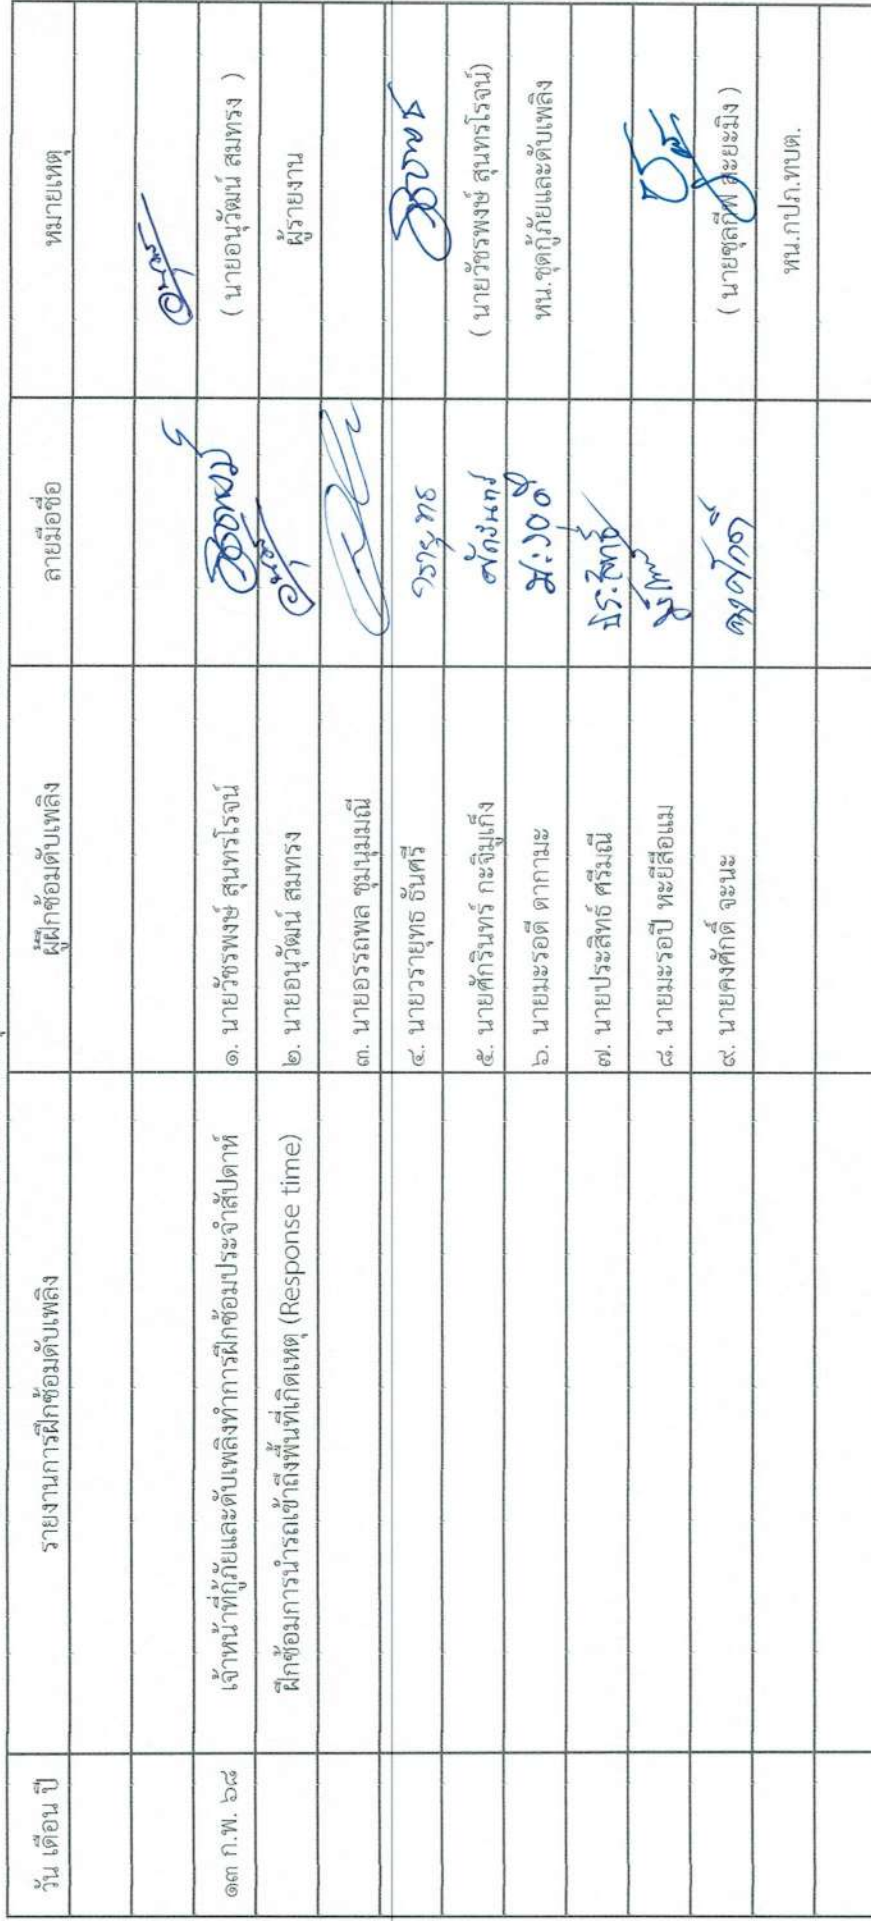 วัน เดือน ปี รายงานการฝึกซ้อมดับเพลิง ผู้ฝึกซ้อมดับเพลิง ลายมือชื่อ หมายเหตุ
๑๓ ก.พ. ๖๘ เจ้าหน้าที่กู้ภัยและดับเพลิงทำการฝึกซ้อมประจำสัปดาห์ ๑. นายวัชรพงษ์ สุนทรโรจน์ ( นายอนุวัฒน์ สมทรง )
ฝึกซ้อมการนำรถเข้าถึงพื้นที่เกิดเหตุ (Response time) ๒. นายอนุวัฒน์ สมทรง ผู้รายงาน
๓. นายอรรถพล ชุมนุมมณี
๔. นายวรายุทธ ธันศรี วรายุทธ
๕. นายศักรินทร์ กะจิมูเก็ง ศักรินทร์ ( นายวัชรพงษ์ สุนทรโรจน์)
๖. นายมะรอดี ดากามะ มะรอดี หน.ชุดกู้ภัยและดับเพลิง
๗. นายประสิทธ์ ศรีมณี ประสิทธ์
๘. นายมะรอปี หะยีสือแม
๙. นายคงศักดิ์ จะนะ คงศักดิ์ ( นายซุลกีฟ
หน.กปภ.ทบต.